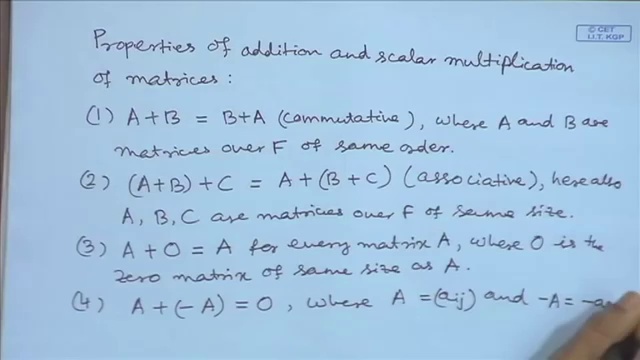 © CET
I.I.T. KGP
Properties of addition and scalar multiplication
of matrices :
(1) A+B = B+A (commutative), where A and B are
matrices over F of same order.
(2) (A+B)+C = A+(B+C) (associative), here also
A, B, C are matrices over F of same size.
(3) A+O = A for every matrix A, where O is the
zero matrix of same size as A.
(4) A+(-A) = O, where A = (aij) and -A = -a